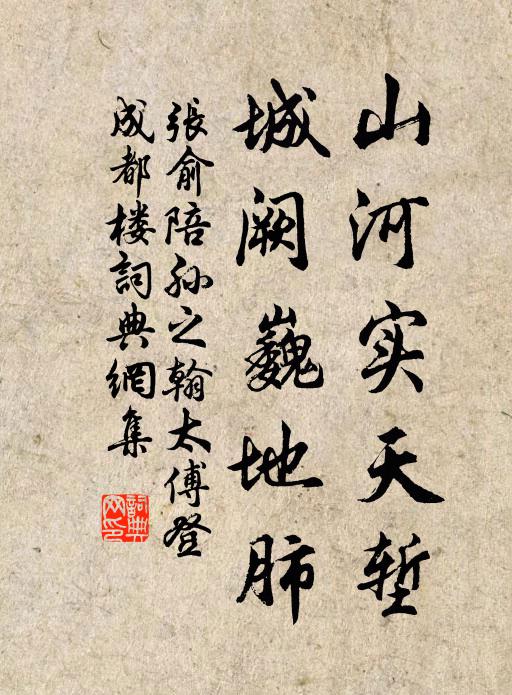 山河实天堑
城阙巍地肺
張俞陪孙之翰太傅登
成都楼詞典網集
詞典
网印